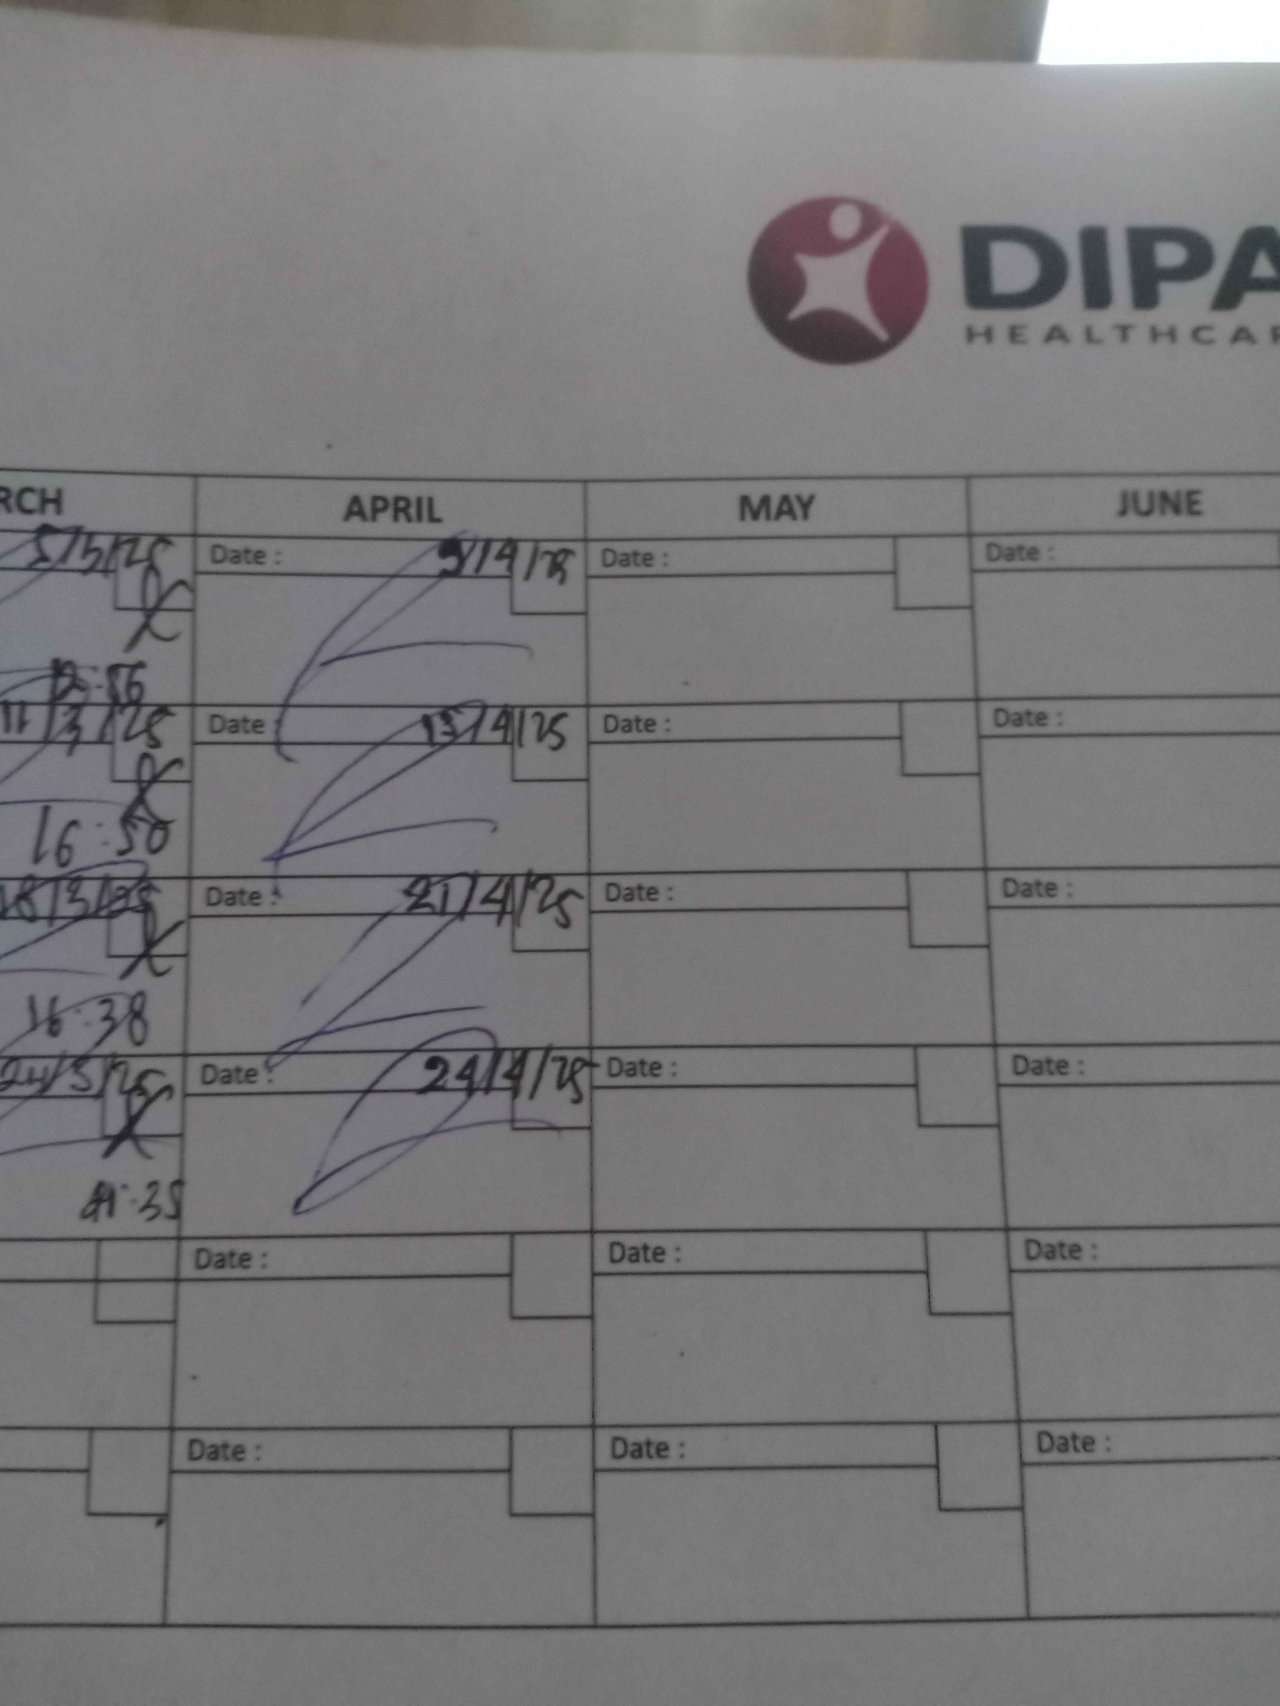 DIPA
HEALTHCAR
RCH APRIL MAY JUNE
5/3/25 Date : 9/4/25 Date : Date :
12:56
11/3/25 Date : 15/4/25 Date : Date :
16:50
18/3/25 Date : 21/4/25 Date : Date :
16:38
24/3/25 Date : 24/4/25 Date : Date :
:35
Date : Date : Date :
Date : Date : Date :